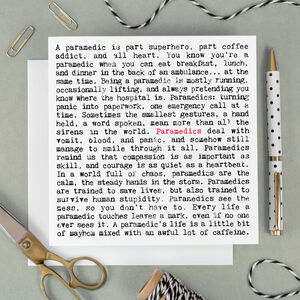 A paramedic is part superhero, part coffee
addict, and all heart. You know you're a
paramedic when you can eat breakfast, lunch,
and dinner in the back of an ambulance... at the
same time. Being a paramedic is mostly running,
occasionally lifting, and always pretending you
know where the hospital is. Paramedics: turning
panic into paperwork, one emergency call at a
time. Sometimes the smallest gestures, a hand
held, a word spoken, mean more than all the
sirens in the world. Paramedics deal with
vomit, blood, and panic, and somehow still
manage to smile through it all. Paramedics
remind us that compassion is as important as
skill, and courage is as quiet as a heartbeat.
In a world full of chaos, paramedics are the
calm, the steady hands in the storm. Paramedics
are trained to save lives, but also trained to
survive human stupidity. Paramedics see the
mess, so you don't have to. Every life a
paramedic touches leaves a mark, even if no one
ever sees it. A paramedic's life is a little bit
of mayhem mixed with an awful lot of caffeine.